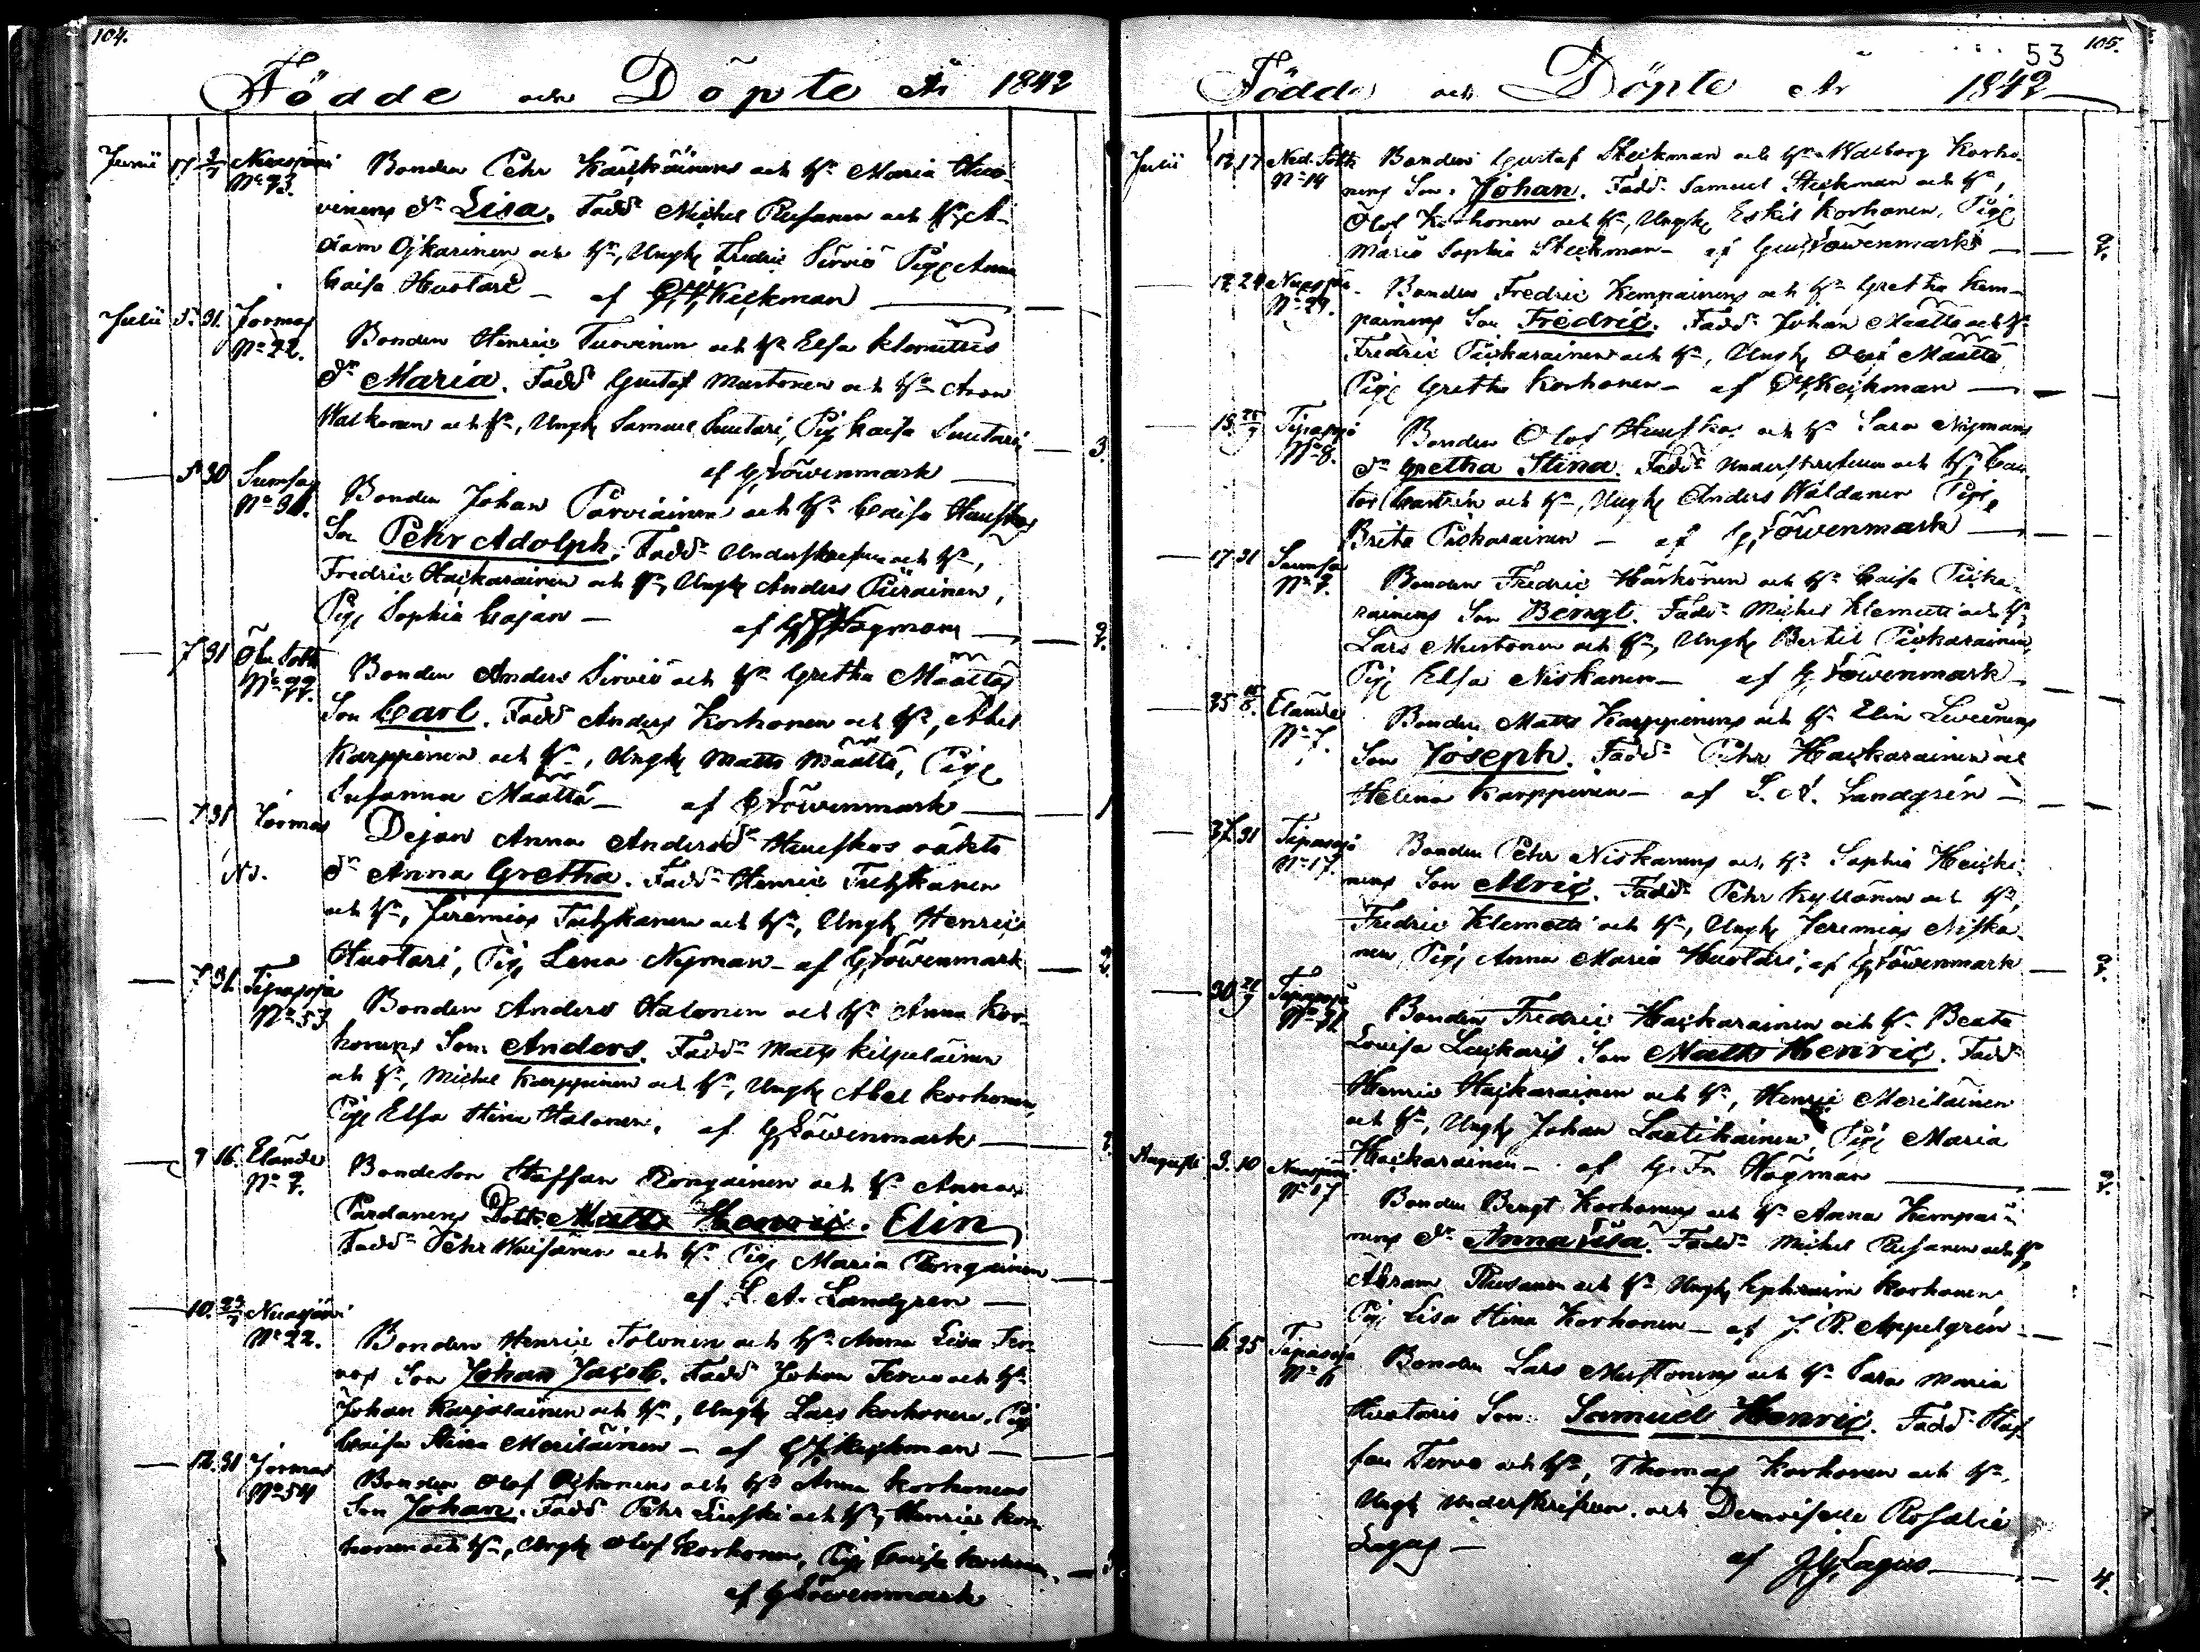 104.
Födde och Döpte År 1842
Junii 17 2/7 Nuasjärvi
No 73.
Bonden Pehr Karjkäinens och Hu Maria Huo-
vinens Dr Lisa. Fadd. Michel Pusanen och Hu, A-
dam Ojkarinen och Hu, Ungk Fredric Sirviö Pig Anna
Caisa Huotari — af Keckman
Julii 5. 31. Jormas
No 22.
Bonden Henric Tuovinen och Hu Elsa Klemettis
Dr Maria. Fadd Gustaf Mustonen och Hu Aron
Walkonen och Hu, Ungk Samuel Suutari, Pig Kaisa Suutari
3.
af G Löwenmark
5 30 Sumsa
Bonden Johan Parviainen och Hu Caisa Hauskos
Son Pehr Adolph. Fadd Underskrifven och Hu,
Fredric Hajkarainen och Hu, Ungk Anders Piirainen,
Pig Sophia Cajan — af G F Hogman
2.
7 31 Öfv. Sotk
Bonden Anders Sirviö och Hu Gretha Määttäs
Son Carl. Fadd Anders Korhonen och Hu, Abel
Karppinen och Hu, Ungk Matts Määttä, Pig
Susanna Määttä — af G Löwenmark
1
7 31 Jormas
Dejan Anna Andersdr Hauskos oäkta
Dr Anna Gretha. Fadd Henric Tulzkanen
och Hu, Jeremias Tulzkanen och Hu, Ungk Henric
Huotari, Pig Lena Nyman — af G Löwenmark
7 31. Tipasoja
No 53
Bonden Anders Halonen och Hu Anna Kor-
honens Son Anders. Fadd Matts Kilpeläinen
och Hu, Michel Karppinen och Hu, Ungk Abel Korhonen,
Pig Elsa Stina Halonen. af G Löwenmark
9 16. Eländ
No 7.
Bondeson Staffan Rongainen och Hu Anna
Pardanens Dotter Matts Henric. Elin
Fadd Pehr Waisänen och Hu Pig Maria Rongainen
af L. A. Landgren
10. 23/7 Nuasjärvi
No 22.
Bonden Henric Tolonen och Hu Anna Lisa Ter-
vos Son Johan Jacob. Fadd Johan Tervo och Hu
Johan Karjalainen och Hu, Ungk Lars Korhonen, Pig
Caisa Stina Meriläinen — af Keckman
12. 31 Jormas
No 54
Bonden Olof Ojkonens och Hu Anna Korhonens
Son Johan. Fadd Pehr Liuski och Hu, Henric Kor-
honen och Hu, Ungk Olof Korhonen, Pig Caisa Korhonen
af G Löwenmark
53 105.
Födde och Döpte År 1842
Julii 12 17 Ned. Sotk
No 14
Bonden Gustaf Keckman och Hu Walborg Korho-
nens Son Johan. Fadd. Samuel Keckman och Hu,
Olof Korhonen och Hu, Ungk Eskil Korhonen, Pig
Maria Sophia Keckman — af Löwenmark
2.
12. 24 Nuasjär.
Bonden Fredric Kempainens och Hu Gretha Kem-
painens Son Fredric. Fadd Johan Määttä och Hu
Fredric Piskarainen och Hu, Ungk Määttä
Pig Gretha Korhonen — af Keckman
15. Tipasoja
No 8.
Bonden Olof Hauskos och Hu Sara Nymans
Dr Gretha Stina. Fadd Underskrifven och Hu, Can-
tor Castrén och Hu, Ungk Anders Waldanen Pig,
Brita Piskarainen — af G Löwenmark
17 31 Saumsa
No 7.
Bonden Fredric Härkönen och Hu Caisa Piska-
rainens Son Bengt. Fadd Michel Klemetti och Hu
Lars Mustonen och Hu, Ungk Bertil Piskarainen
Pig Elsa Niskanen — af G Löwenmark
25 Eländ
No 7.
Bonden Matts Karppinens och Hu Elin Leveinens
Son Joseph. Fadd Pehr Hajkarainen och
Helena Karppinen — af L. A. Landgrén
27. 31 Tipasoja
No 17.
Bonden Pehr Niskanens och Hu Sophia Heicki-
nens Son Ulric. Fadd Pehr Kyllönen och Hu,
Fredric Klemetti och Hu, Ungk Jeremias Niska-
nen, Pig Anna Maria Huotari, af G Löwenmark
2.
30 Tipasoja
Bonden Fredric Hajkarainen och Hu Beata
Lovisa Lajkaris Son Matts Henric. Fadd
Henric Hajkarainen och Hu, Henric Meriläinen
och Hu, Ungk Johan Laatikainen, Pig Maria
Hajkarainen — af G. Fr. Hogman
2.
Augusti 3. 10 Nuasjärvi
No 17
Bonden Bengt Korhonens och Hu Anna Kempai-
nens Dr Anna Lisa. Fadd Michel Pusanen och Hu,
Abram Pusanen och Hu Ungk Ephraim Korhonen
Pig Lisa Stina Korhonen — af J. R. Appelgrén
6. 25 Tipasoja
No 6
Bonden Lars Mustonens och Hu Sara Maria
Huotaris Son Samuel Henric. Fadd Staf-
fan Tervo och Hu, Thomas Korhonen och Hu,
Ungk Underskrifven och Demoiselle Rosalie
Lagus — af J G Lagus
4.